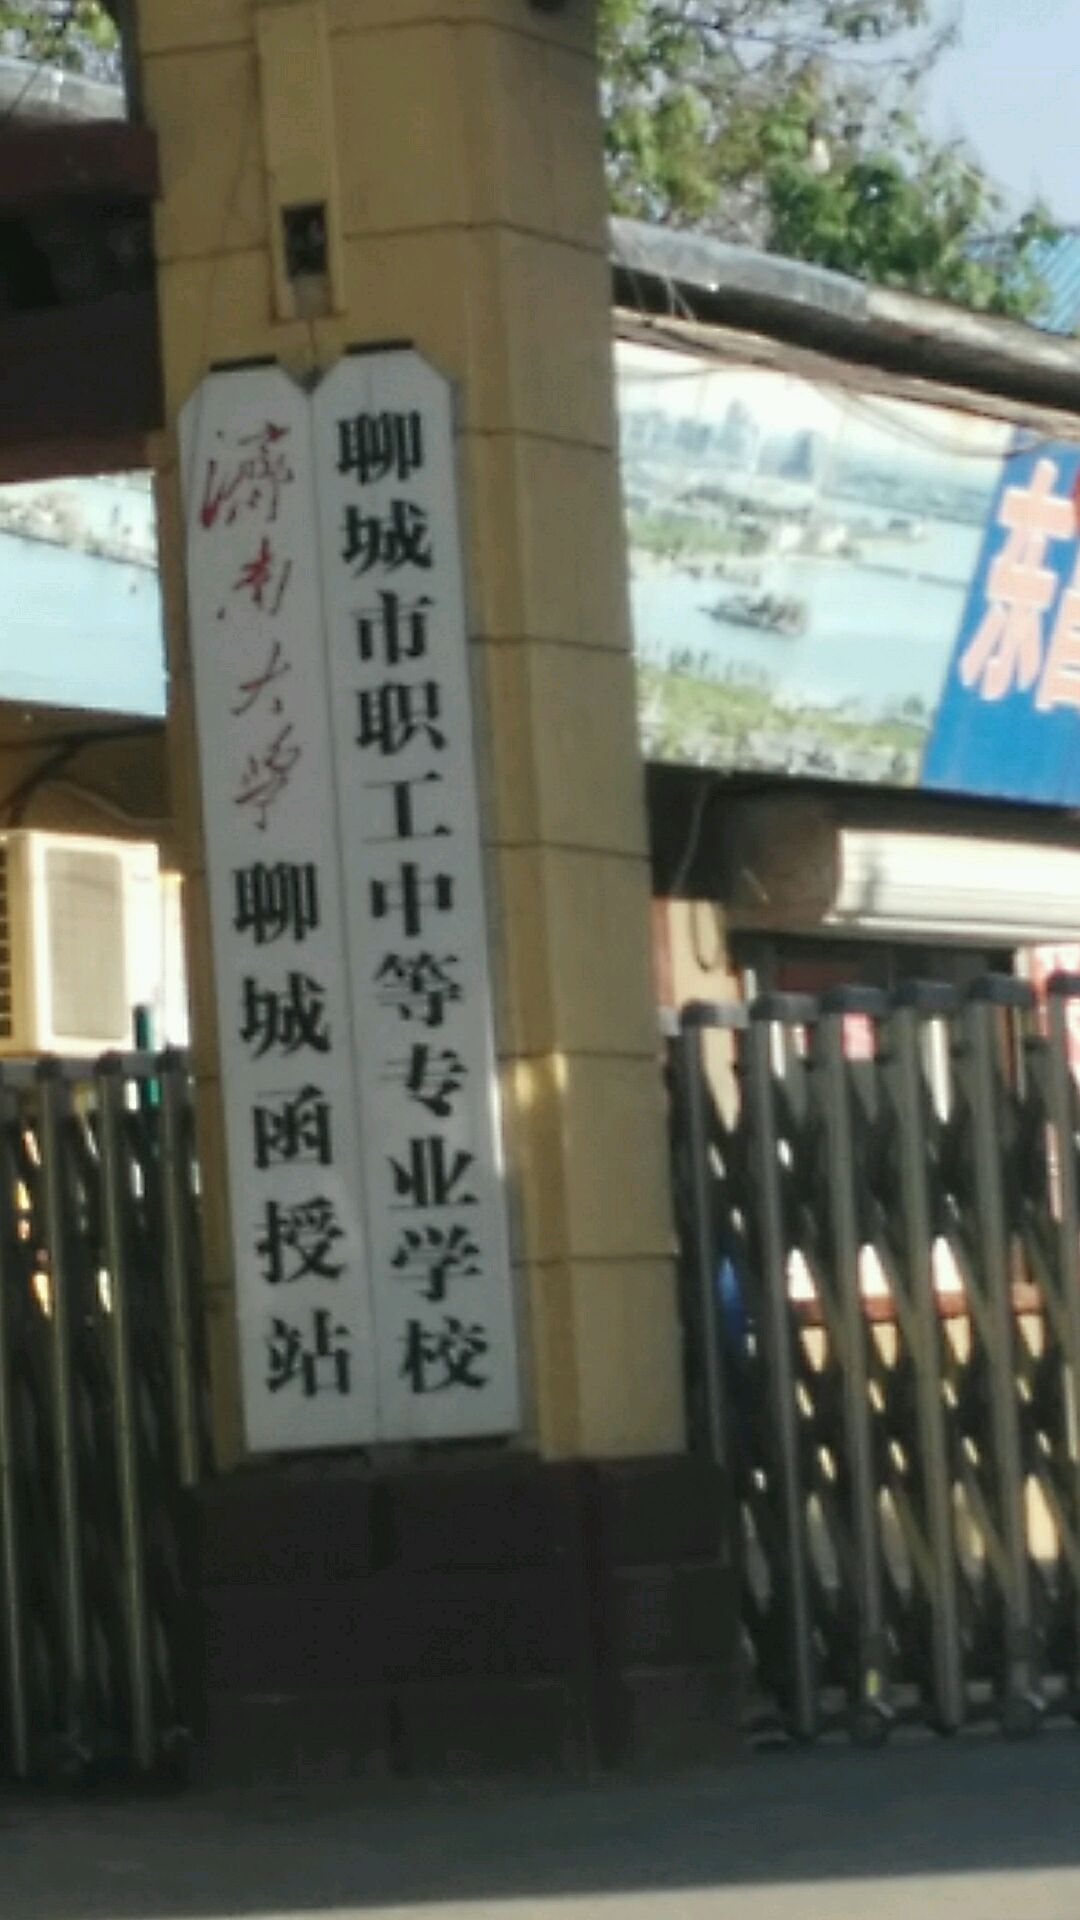 聊城市职工中等专业学校
濟南大学聊城函授站
东昌